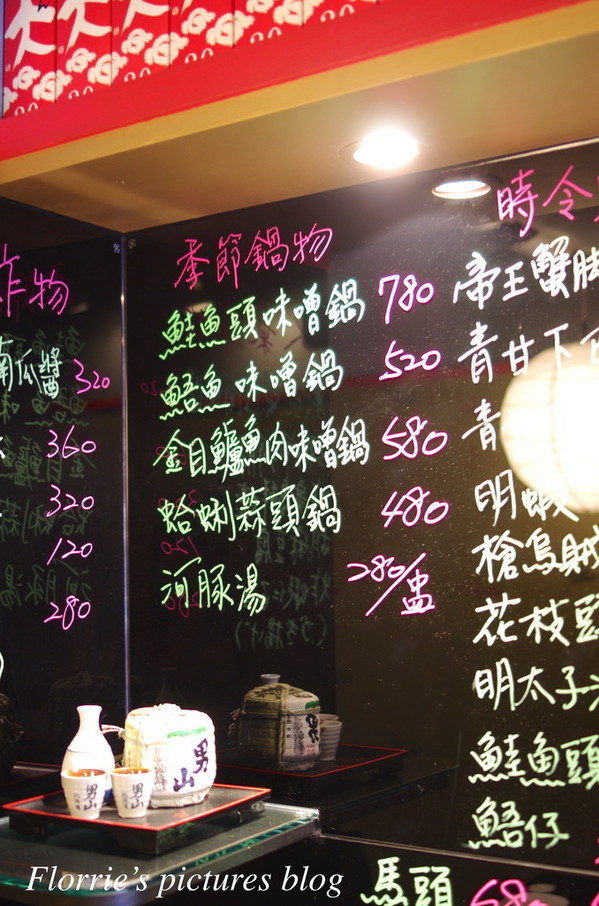 炸物
南瓜醬 320
360
320
120
280
季節鍋物
鮭魚頭味噌鍋 780
鯃魚味噌鍋 520
金目鱸魚肉味噌鍋 580
蛤蜊蒜頭鍋 480
河豚湯 280/盅
時令
帝王蟹腳
青甘下
青
明蝦
槍烏賊
花枝
明太子
鮭魚頭
鯃仔
馬頭 680
男山
男山
男山
Florrie's pictures blog